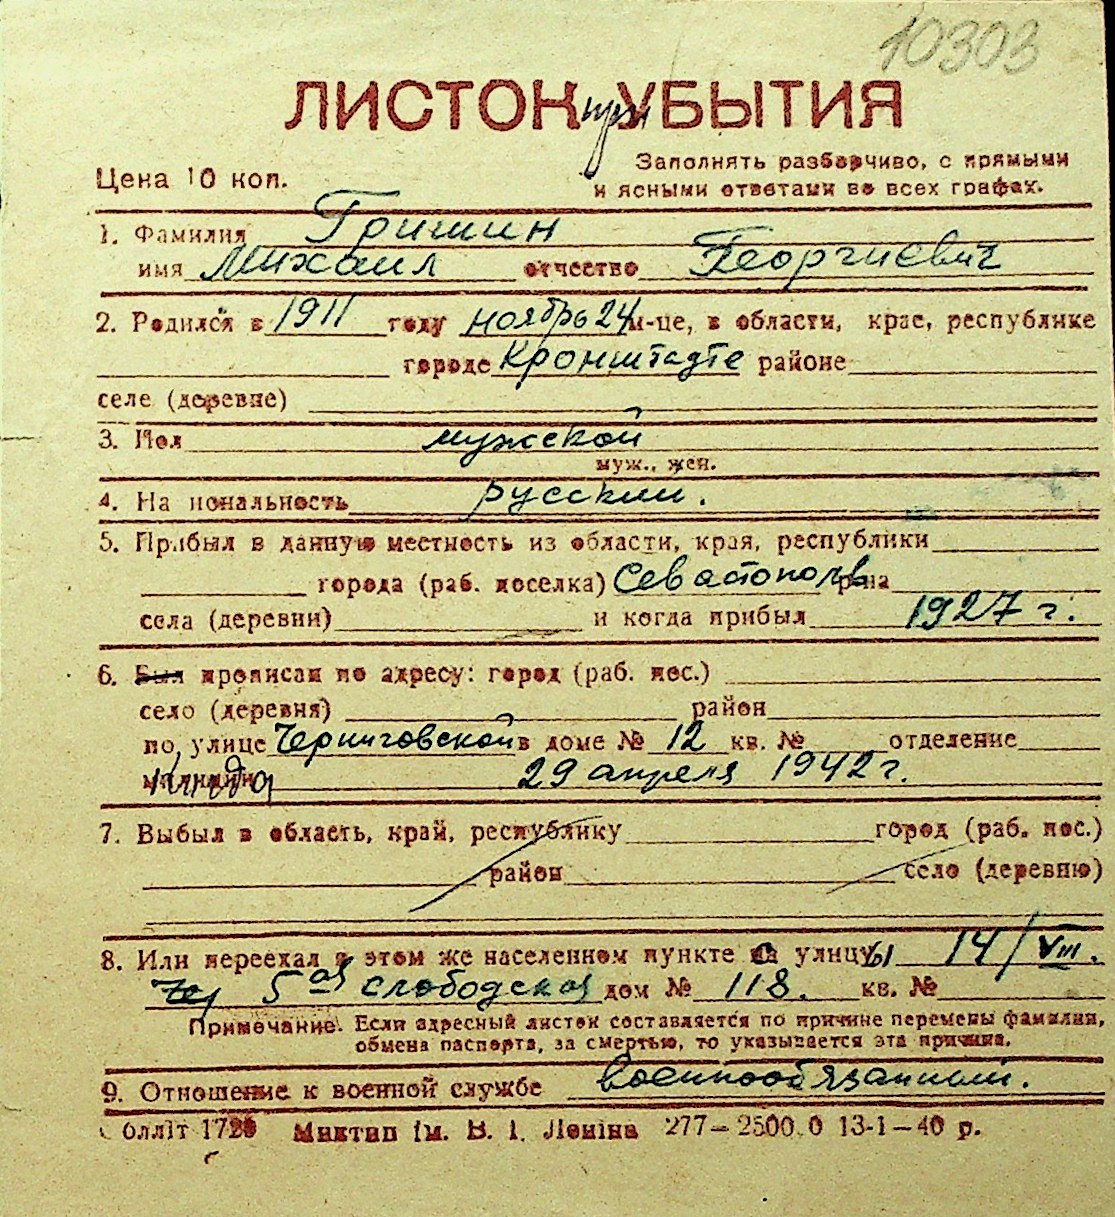 10303
ЛИСТОК при УБЫТИЯ
Цена 10 коп.
Заполнять разборчиво, с прямыми
и ясными ответами во всех графах.
1. Фамилия Гришин
имя Михаил отчество Георгиевич
2. Родился в 1911 году ноябрь 24 м-це, в области, крае, республике
городе Кронштадте районе
селе (деревне)
3. Пол мужской
муж., жен.
4. На иональность русский.
5. Прибыл в данную местность из области, края, республики
города (раб. поселка) Севастополь р-на
села (деревни) и когда прибыл 1927 г.
6. Был прописан по адресу: город (раб. пос.)
село (деревня) район
по улице Черниговской в доме № 12 кв. № отделение
29 апреля 1942 г.
7. Выбыл в область, край, республику город (раб. пос.)
район село (деревню)
8. Или переехал в этом же населенном пункте с улицы 14/VIII.
5ая слободская дом № 118. кв. №
Примечание. Если адресный листок составляется по причине перемены фамилии,
обмена паспорта, за смертью, то указывается эта причина.
9. Отношение к военной службе военнообязанный.
облліт 1729 Миктип ім. В. І. Леніна 277–2500.0 13-1–40 р.